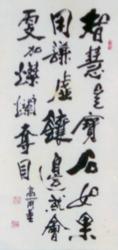 智慧是寶石如果
用謙虛鑲邊就會
更加燦爛奪目